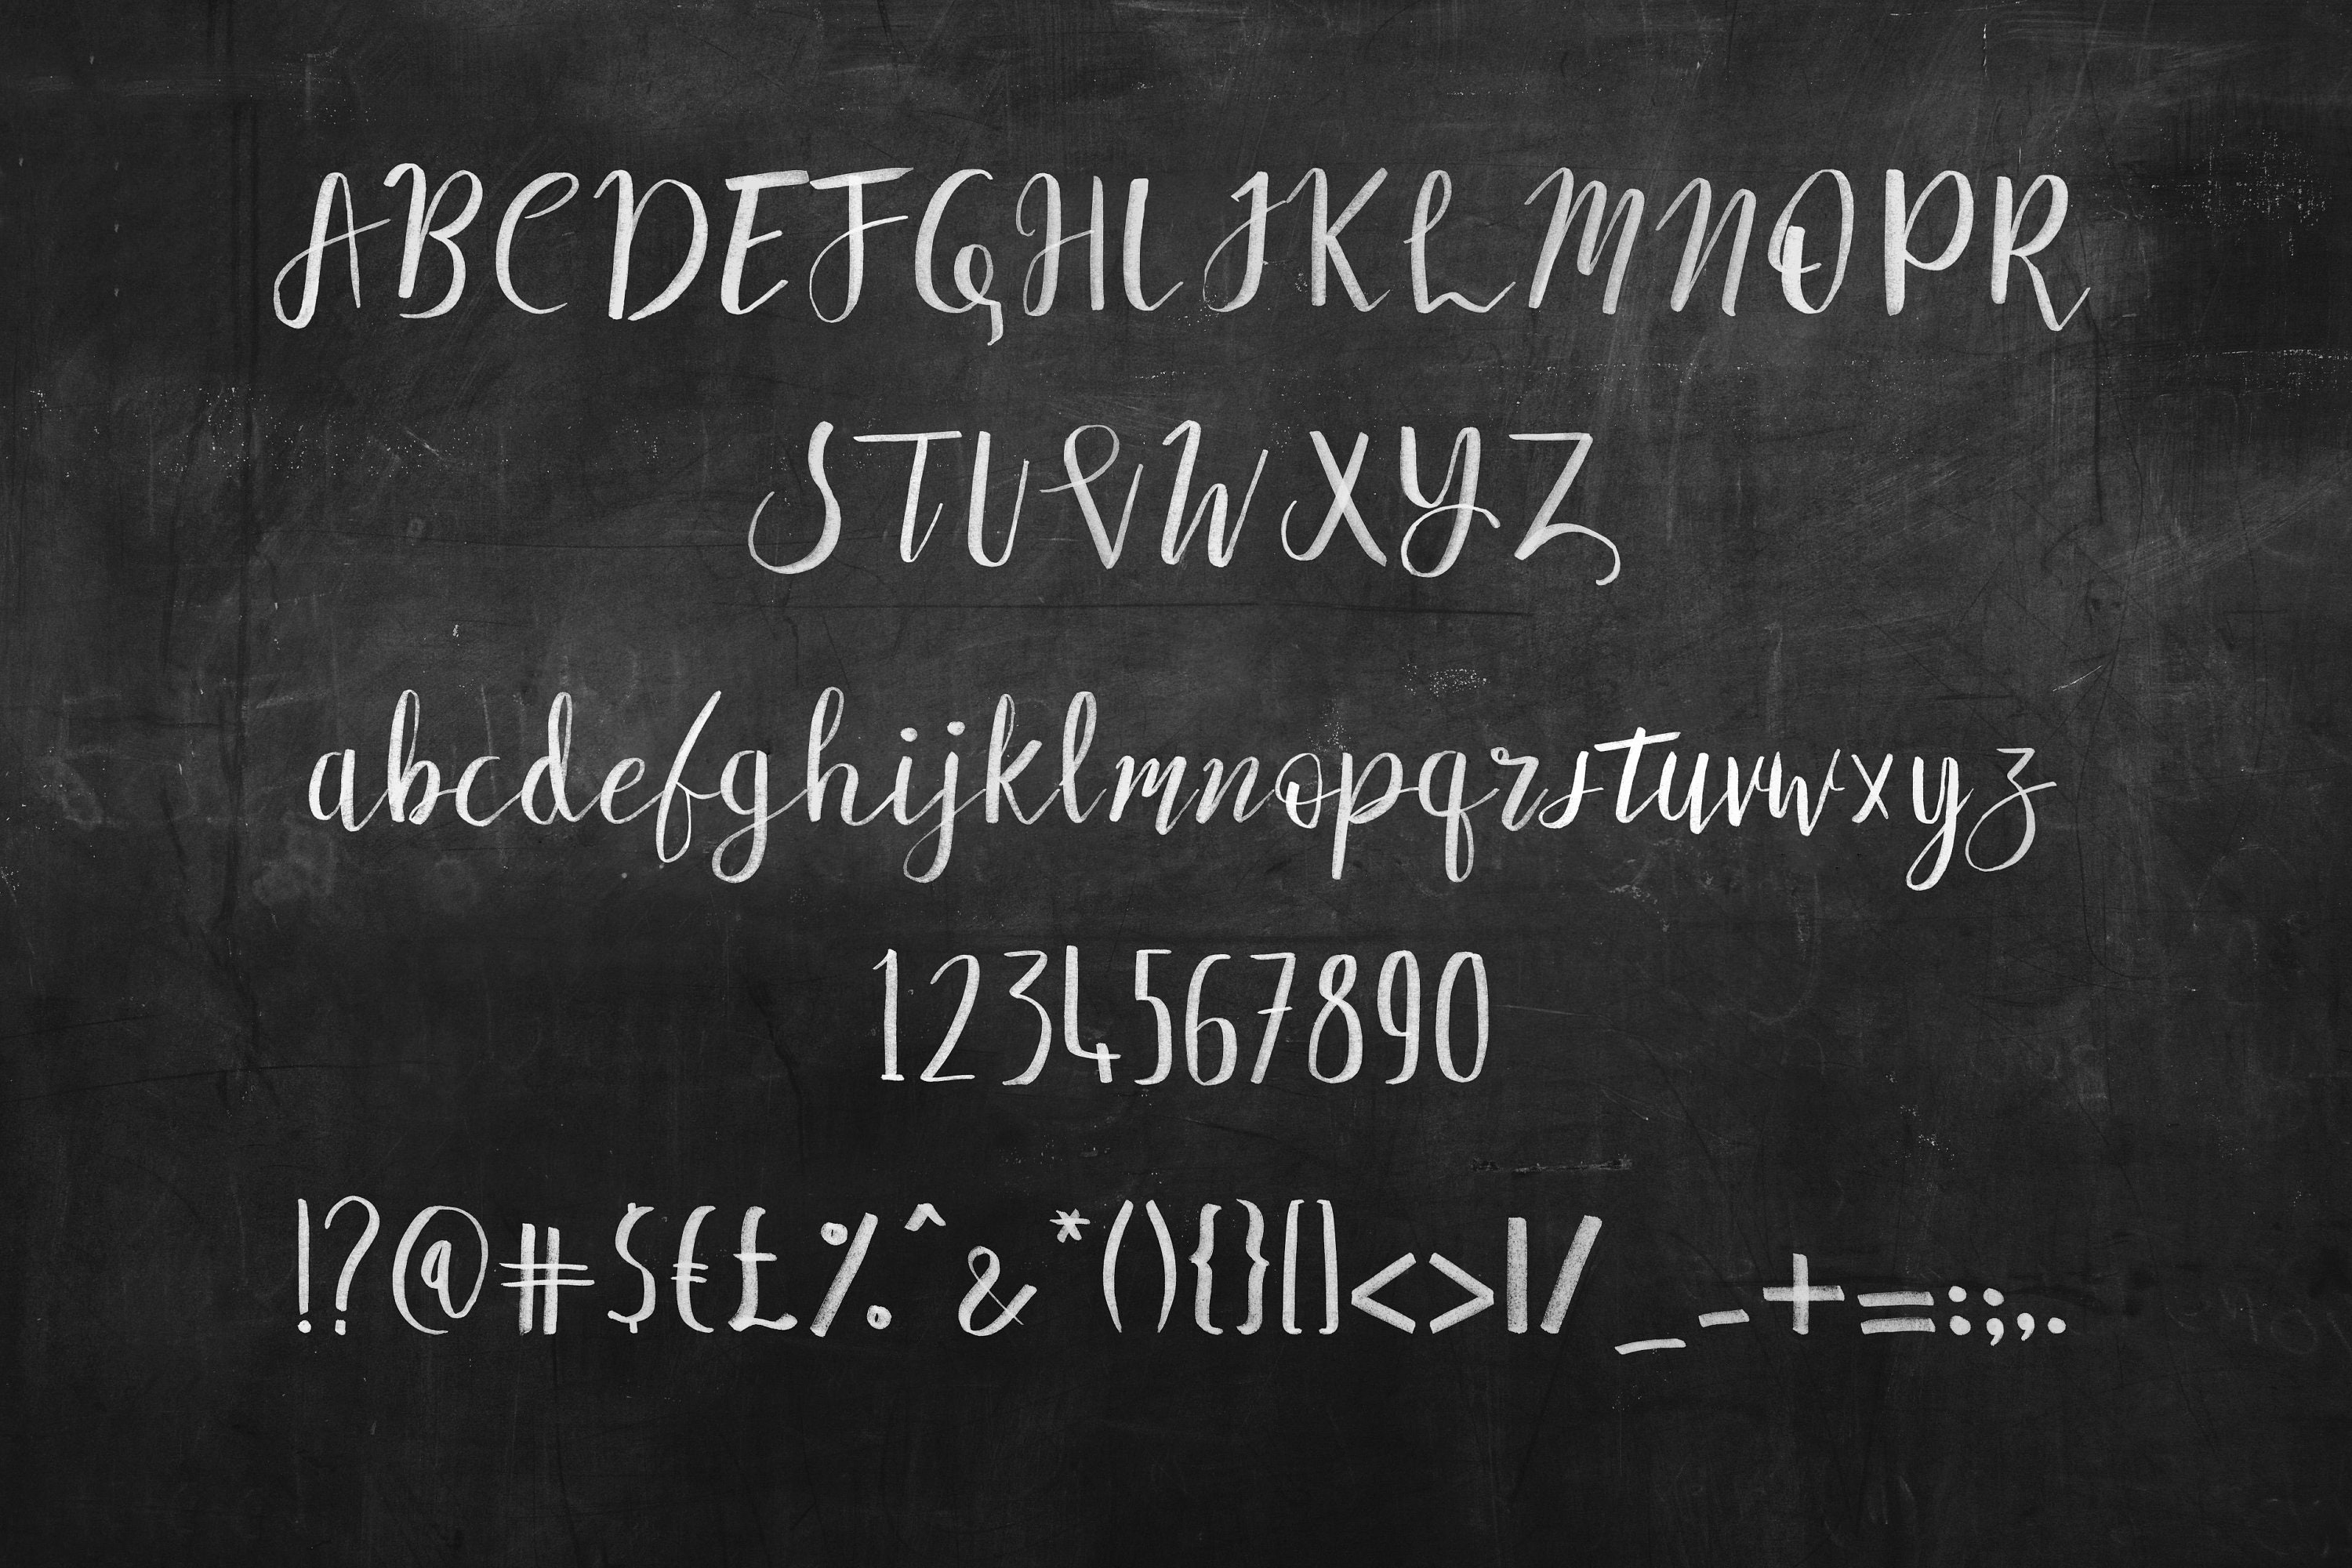 ABCDEFGHIJKLMNOPR
STUVWXYZ
abcdefghijklmnopqrstuvwxyz
1234567890
!?@#$€£%^&*(){}[]<>|/_-+=:;,.